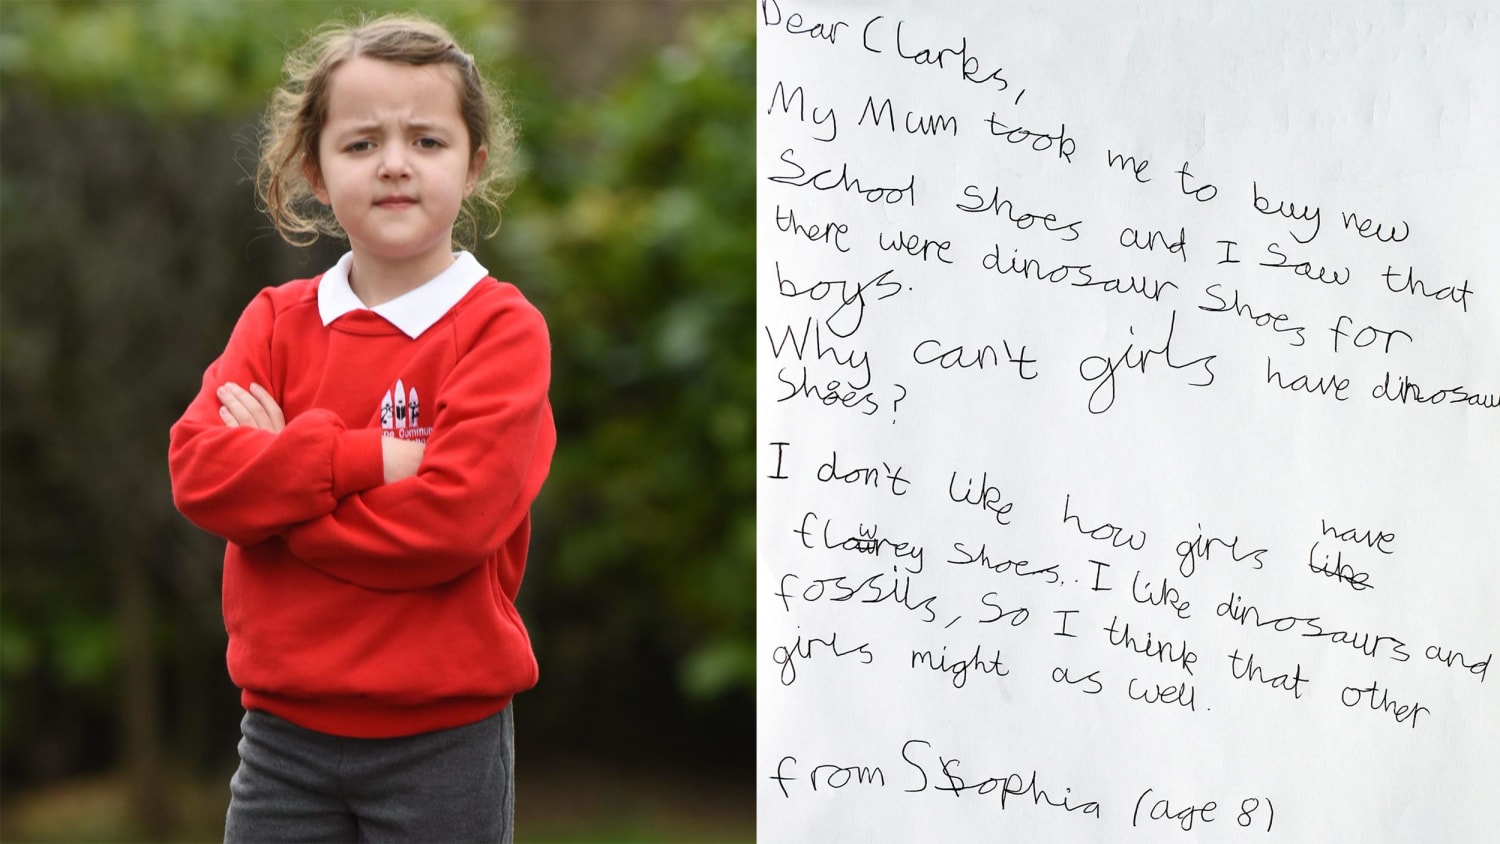 Dear Clarks,
My Mum took me to buy new
School Shoes and I Saw that
there were dinosaur Shoes for
boys.
Why can't girls have dinosaur
Shoes?
I don't like how girls have
like
flowrey Shoes. I like dinosaurs and
fossils, So I think that other
girls might as well.
from Sophia (age 8)